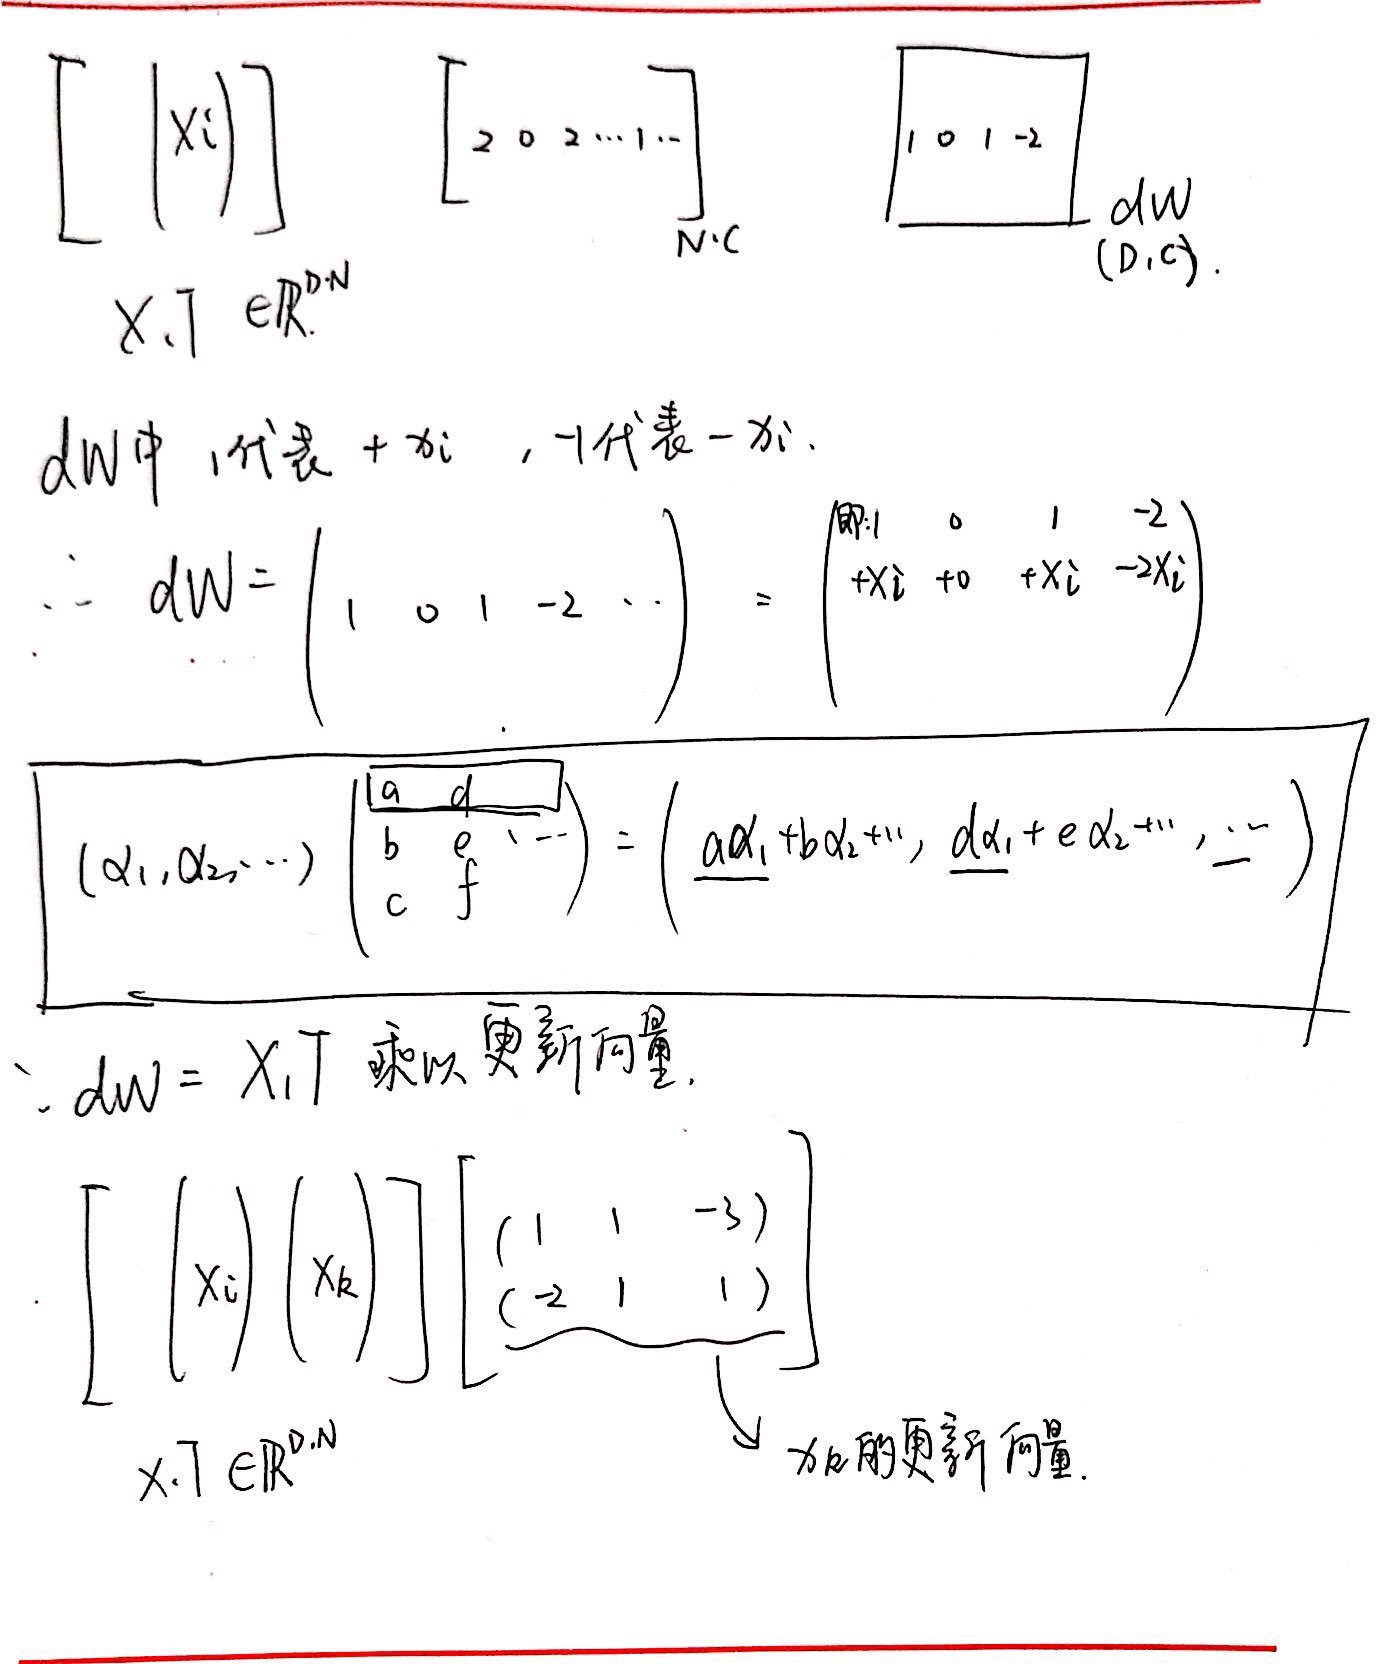 [ (Xi) ] [ 2 0 2 ... 1 ... ] N·C 1 0 1 -2 dW (D,C).
X.T ∈ℝ^D·N
dW中 1代表 + xi , -1代表 - xi.
∴ dW = ( 1 0 1 -2 ... ) = ( 即:1 0 1 -2
+Xi +0 +Xi -2Xi )
(α1, α2, ...) ( a d
b e ...
c f ) = ( aα1+bα2+..., dα1+eα2+..., ... )
∴ dW = X.T 乘以 更新向量.
[ (Xi) (Xk) ] [ (1 1 -3)
(-2 1 1) ]
X.T ∈ℝ^D·N
xk的更新向量.